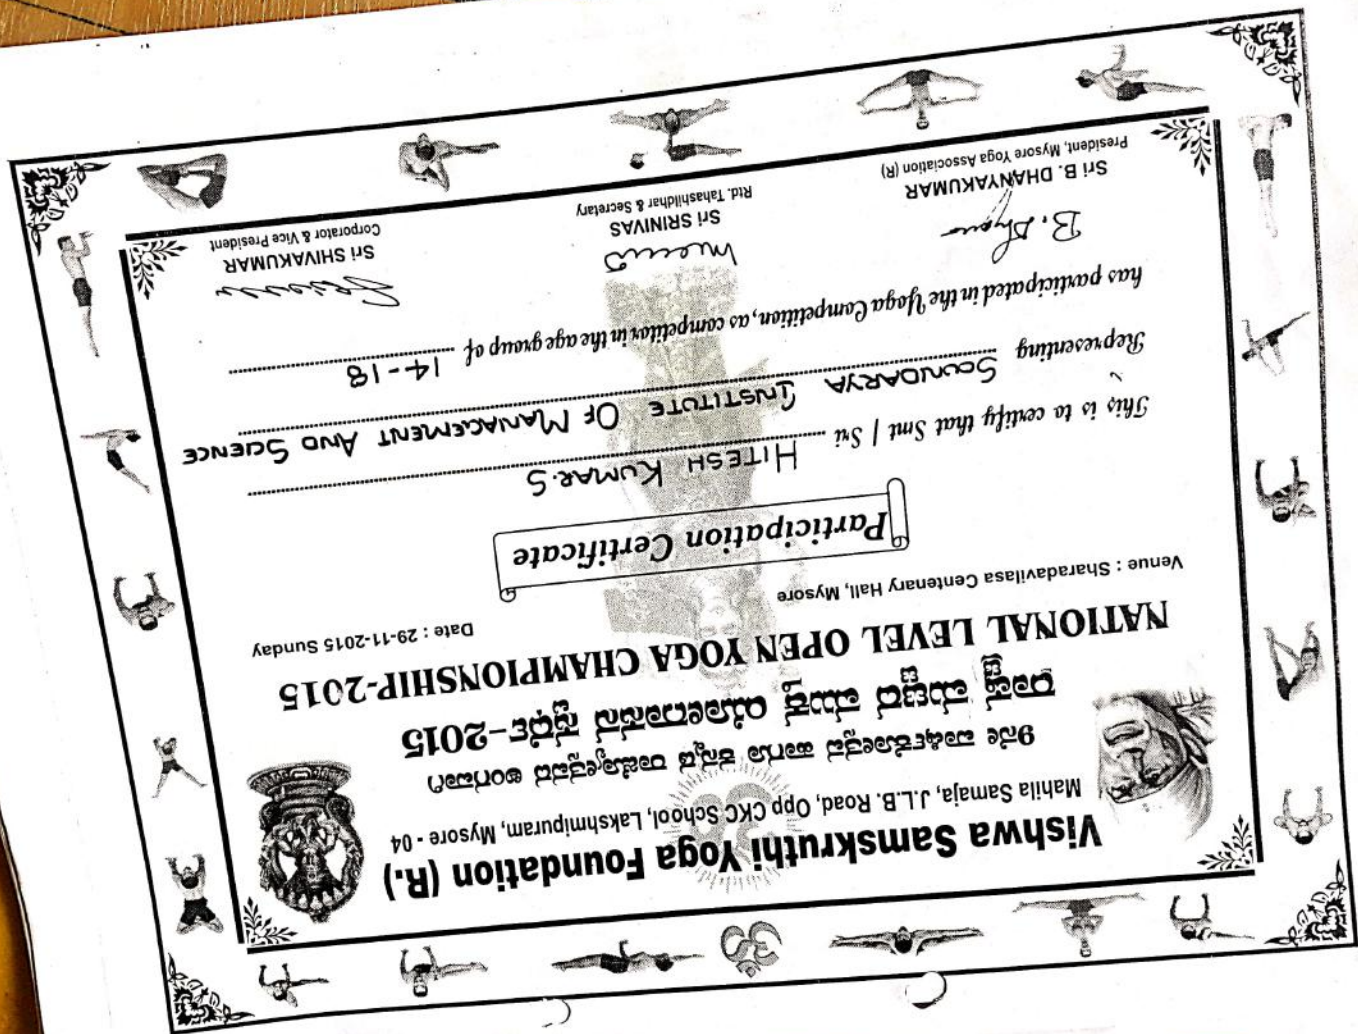 Vishwa Samskruthi Yoga Foundation (R.)
Mahila Samaja, J.L.B. Road, Opp CKC School, Lakshmipuram, Mysore - 04
9ನೇ ವಾರ್ಷಿಕೋತ್ಸವ ಹಾಗೂ ಕನ್ನಡ ರಾಜ್ಯೋತ್ಸವದ ಅಂಗವಾಗಿ
ರಾಷ್ಟ್ರ ಮಟ್ಟದ ಮುಕ್ತ ಯೋಗಾಸನ ಸ್ಪರ್ಧೆ-2015
NATIONAL LEVEL OPEN YOGA CHAMPIONSHIP-2015
Venue : Sharadavilasa Centenary Hall, Mysore Date : 29-11-2015 Sunday
Participation Certificate
This is to certify that Smt / Sri HITESH KUMAR.S
Representing SOUNDARYA INSTITUTE OF MANAGEMENT AND SCIENCE
has participated in the Yoga Competition, as competitor in the age group of 14-18
Sri B. DHANYAKUMAR Sri SRINIVAS Sri SHIVAKUMAR
President, Mysore Yoga Association (R) Rtd. Tahashildhar & Secretary Corporator & Vice President